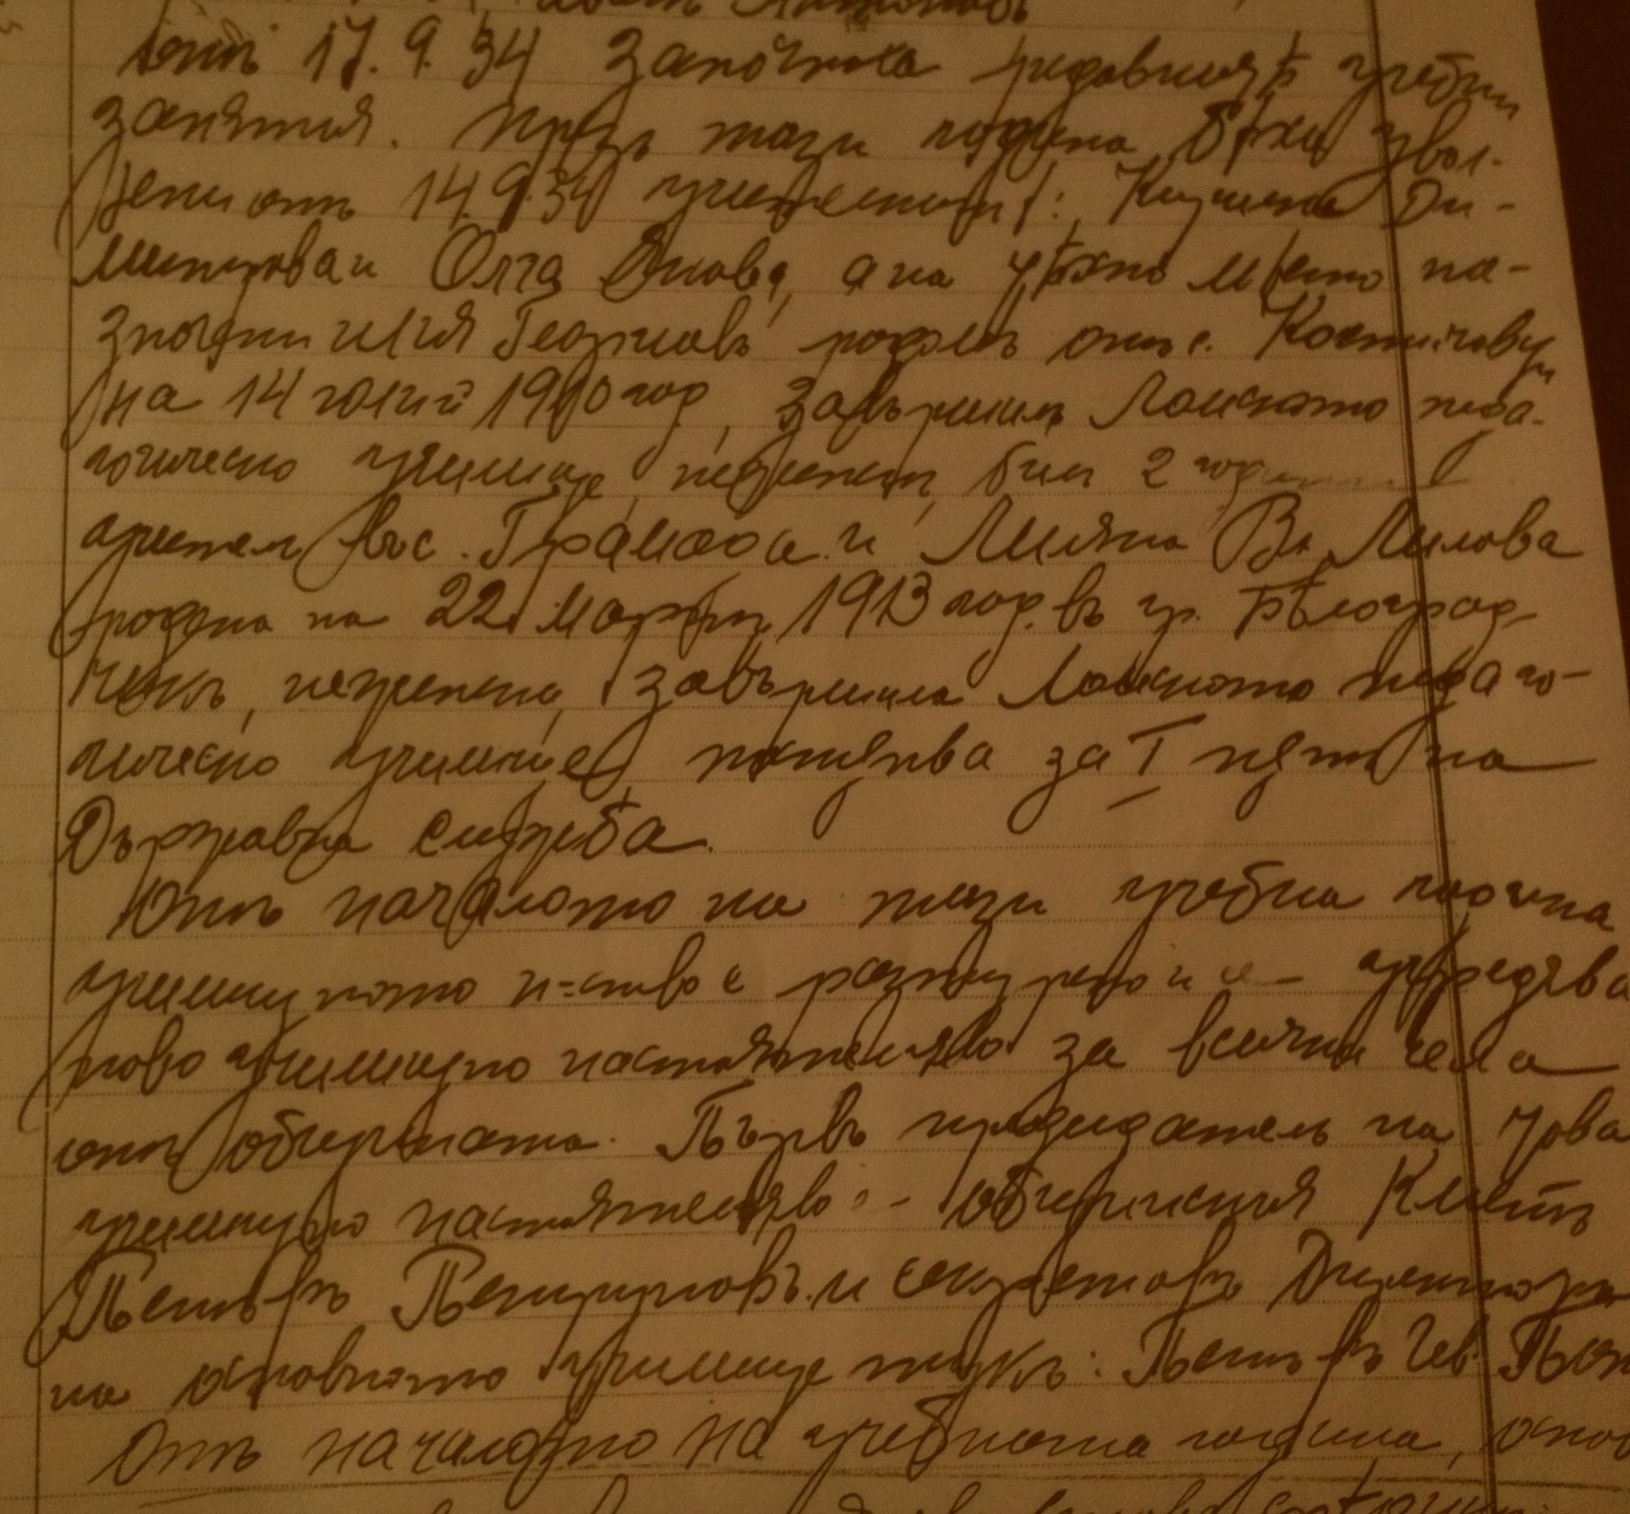 Антоновъ
отъ 17.9.34 започнаха редовнитѣ учебни
занятия. Презъ тази година бѣха увол-
нени отъ 14.9.34 учителкитѣ: Ди-
митрова и Олга, а на тѣхно място на-
значени Илия Георгиевъ роденъ отъ с.
на 14 юлий 1910 год, завършилъ Ломското педа-
гогическо училище, неженен, бил 2 години
учител въ с. Граматада и Лиляна В. Лилова
родена на 22 мартъ 1913 год. въ гр. Бѣлоград-
чикъ, неженена, завършила Ломското педаго-
гическо училище, постъпва за I пѫть на
Държавна служба.
Отъ началото на тази учебна година
училищното н-ство е разтурено и се учредява
ново училищно настоятелство за всички села
отъ общината. Първъ председатель на това
училищно настоятелство - общинския Кметъ
Петъръ и секретарь Директора
на основното училище тукъ: Петъръ Цв.
Отъ началото на учебната година,